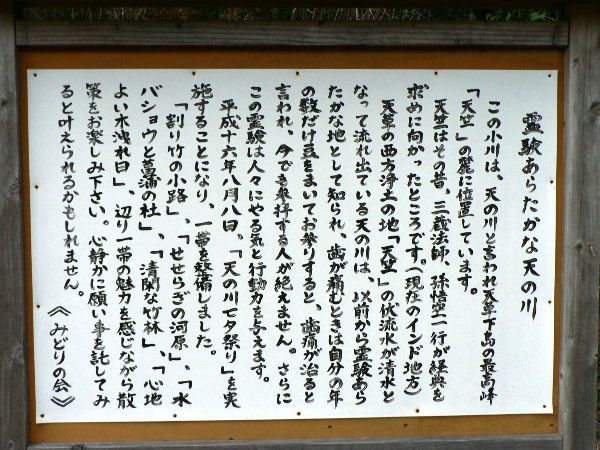 霊験あらたかな天の川
この小川は、天の川と言われ天草下島の最高峰
「天竺」の麓に位置しています。
天竺はその昔、三蔵法師、孫悟空一行が経典を
求めに向かったところです。(現在のインド地方)
天草の西方浄土の地「天竺」の伏流水が清水と
なって流れ出ている天の川は、以前から霊験あら
たかな地として知られ、歯が痛むときは自分の年
の数だけ豆をまいてお参りすると、歯痛が治ると
言われ、今でも参拝する人が絶えません。さらに
この霊験は人々にやる気と行動力を与えます。
平成十六年八月八日、「天の川七夕祭り」を実
施することになり、一帯を整備しました。
「割り竹の小路」、「せせらぎの河原」、「水
バショウと菖蒲の杜」、「清閑な竹林」、「心地
よい木洩れ日」、辺り一帯の魅力を感じながら散
策をお楽しみ下さい。心静かに願い事を託してみ
ると叶えられるかもしれません。
《みどりの会》